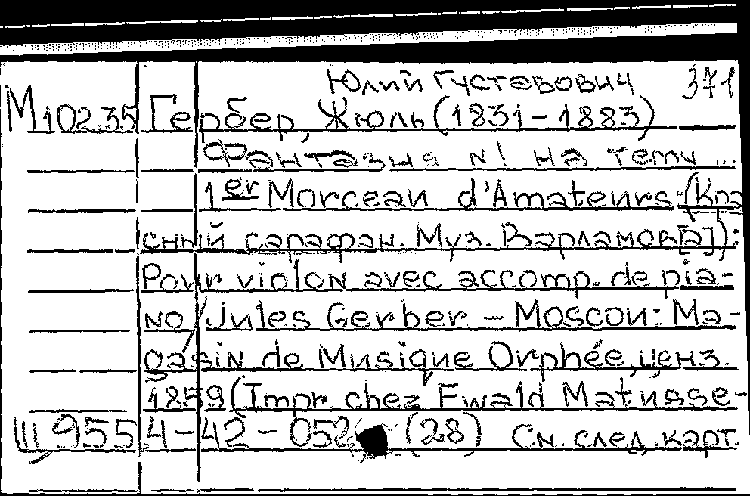 Юлий Густавович 371
М10235 Гербер, Жюль (1831-1883)
Фантазия N1 на тему ...
1er Morceau d'Amateurs: (Кра
сный сарафан. Муз. Варламов[а]):
Pour violon avec accomp. de pia-
no / Jules Gerber. - Moscou: Ma-
gasin de Musique Orphée, ценз.
1859 (Impr. chez Ewald Matusse-
Ш 955 4-42-052 (28) См. след. карт.